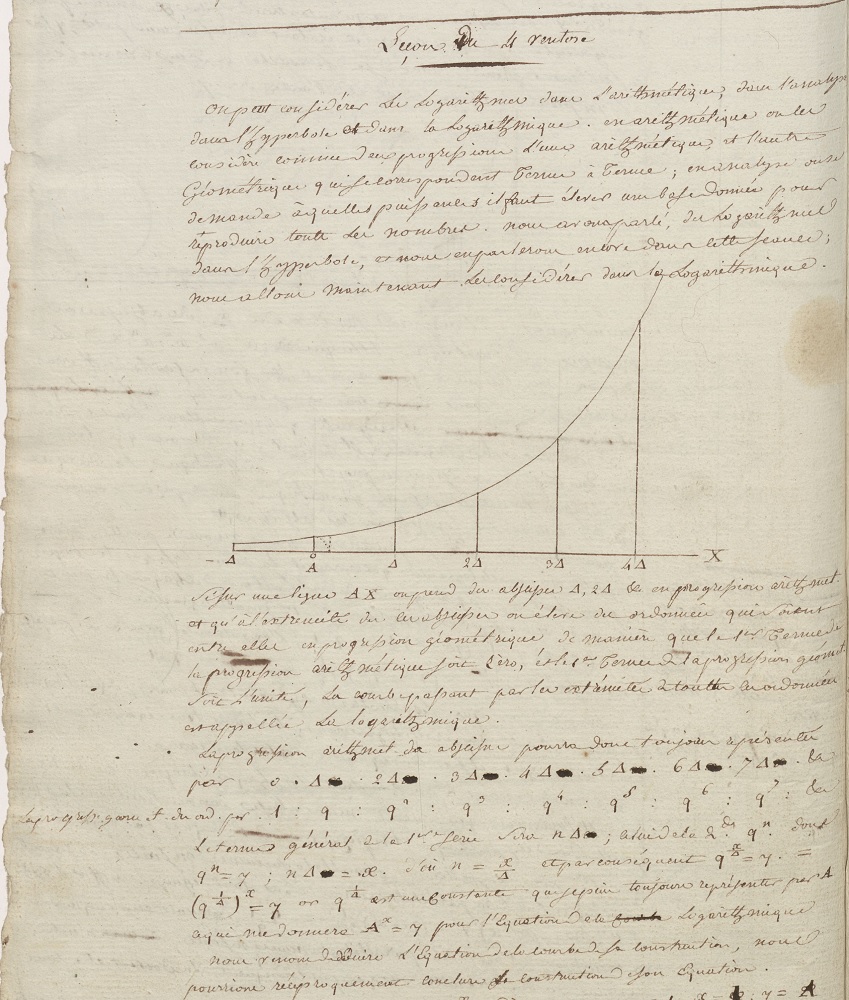 Leçon Du 4 ventose
On peut considérer les Logarithmes dans l'arithmétique, dans l'analyse
dans l'hyperbole et dans la Logarithmique. en arithmétique on les
considère comme deux progressions l'une arithmétique, et l'autre
Géométrique qui se correspondent Terme à Terme; en analyse on se
demande à quelles puissances il faut élever une base donnée pour
reproduire tous les nombres. nous avons parlé, des Logarithmes
dans l'hyperbole, et nous en parlerons encore dans cette seance;
nous allons maintenant les considérer dans la Logarithmique.
Δ o Δ 2Δ 3Δ 4Δ X
A
Si sur une ligne AX on prend des abscisses Δ, 2Δ &c en progression arithmet.
et qu'à l'extremité de ces abscisses on élève des ordonnées qui soient
entre elles en progression géométrique de manière que le 1er Terme de
la progression arithmétique soit Zéro, et le 1er Terme de la progression géomet
soit L'unité, La courbe passant par les extrémités de toutes ces ordonnées
est appellée La logarithmique.
La progression arithmet des abscisses pourra donc toujours représenter
par 0 . Δ . 2Δ . 3Δ . 4Δ . 5Δ . 6Δ . 7Δ . &c
La progress. géomet. des ord. par . 1 : q : q² : q³ : q⁴ : q⁵ : q⁶ : q⁷ : &c
Le terme général de la 1ere Serie sera nΔ ; celui de la 2de qⁿ donc
qⁿ = y ; nΔ = x. d'où n = x/Δ et par conséquent q^(x/Δ) = y. =
(q^(1/Δ))^x = y or q^(1/Δ) est une Constante qui se peut toujours représenter par A
ce qui me donnera A^x = y pour l'Equation de la Logarithmique
nous venons de déduire L'Equation de la courbe de sa construction, nous
pourrions réciproquement conclure sa construction de son Equation.